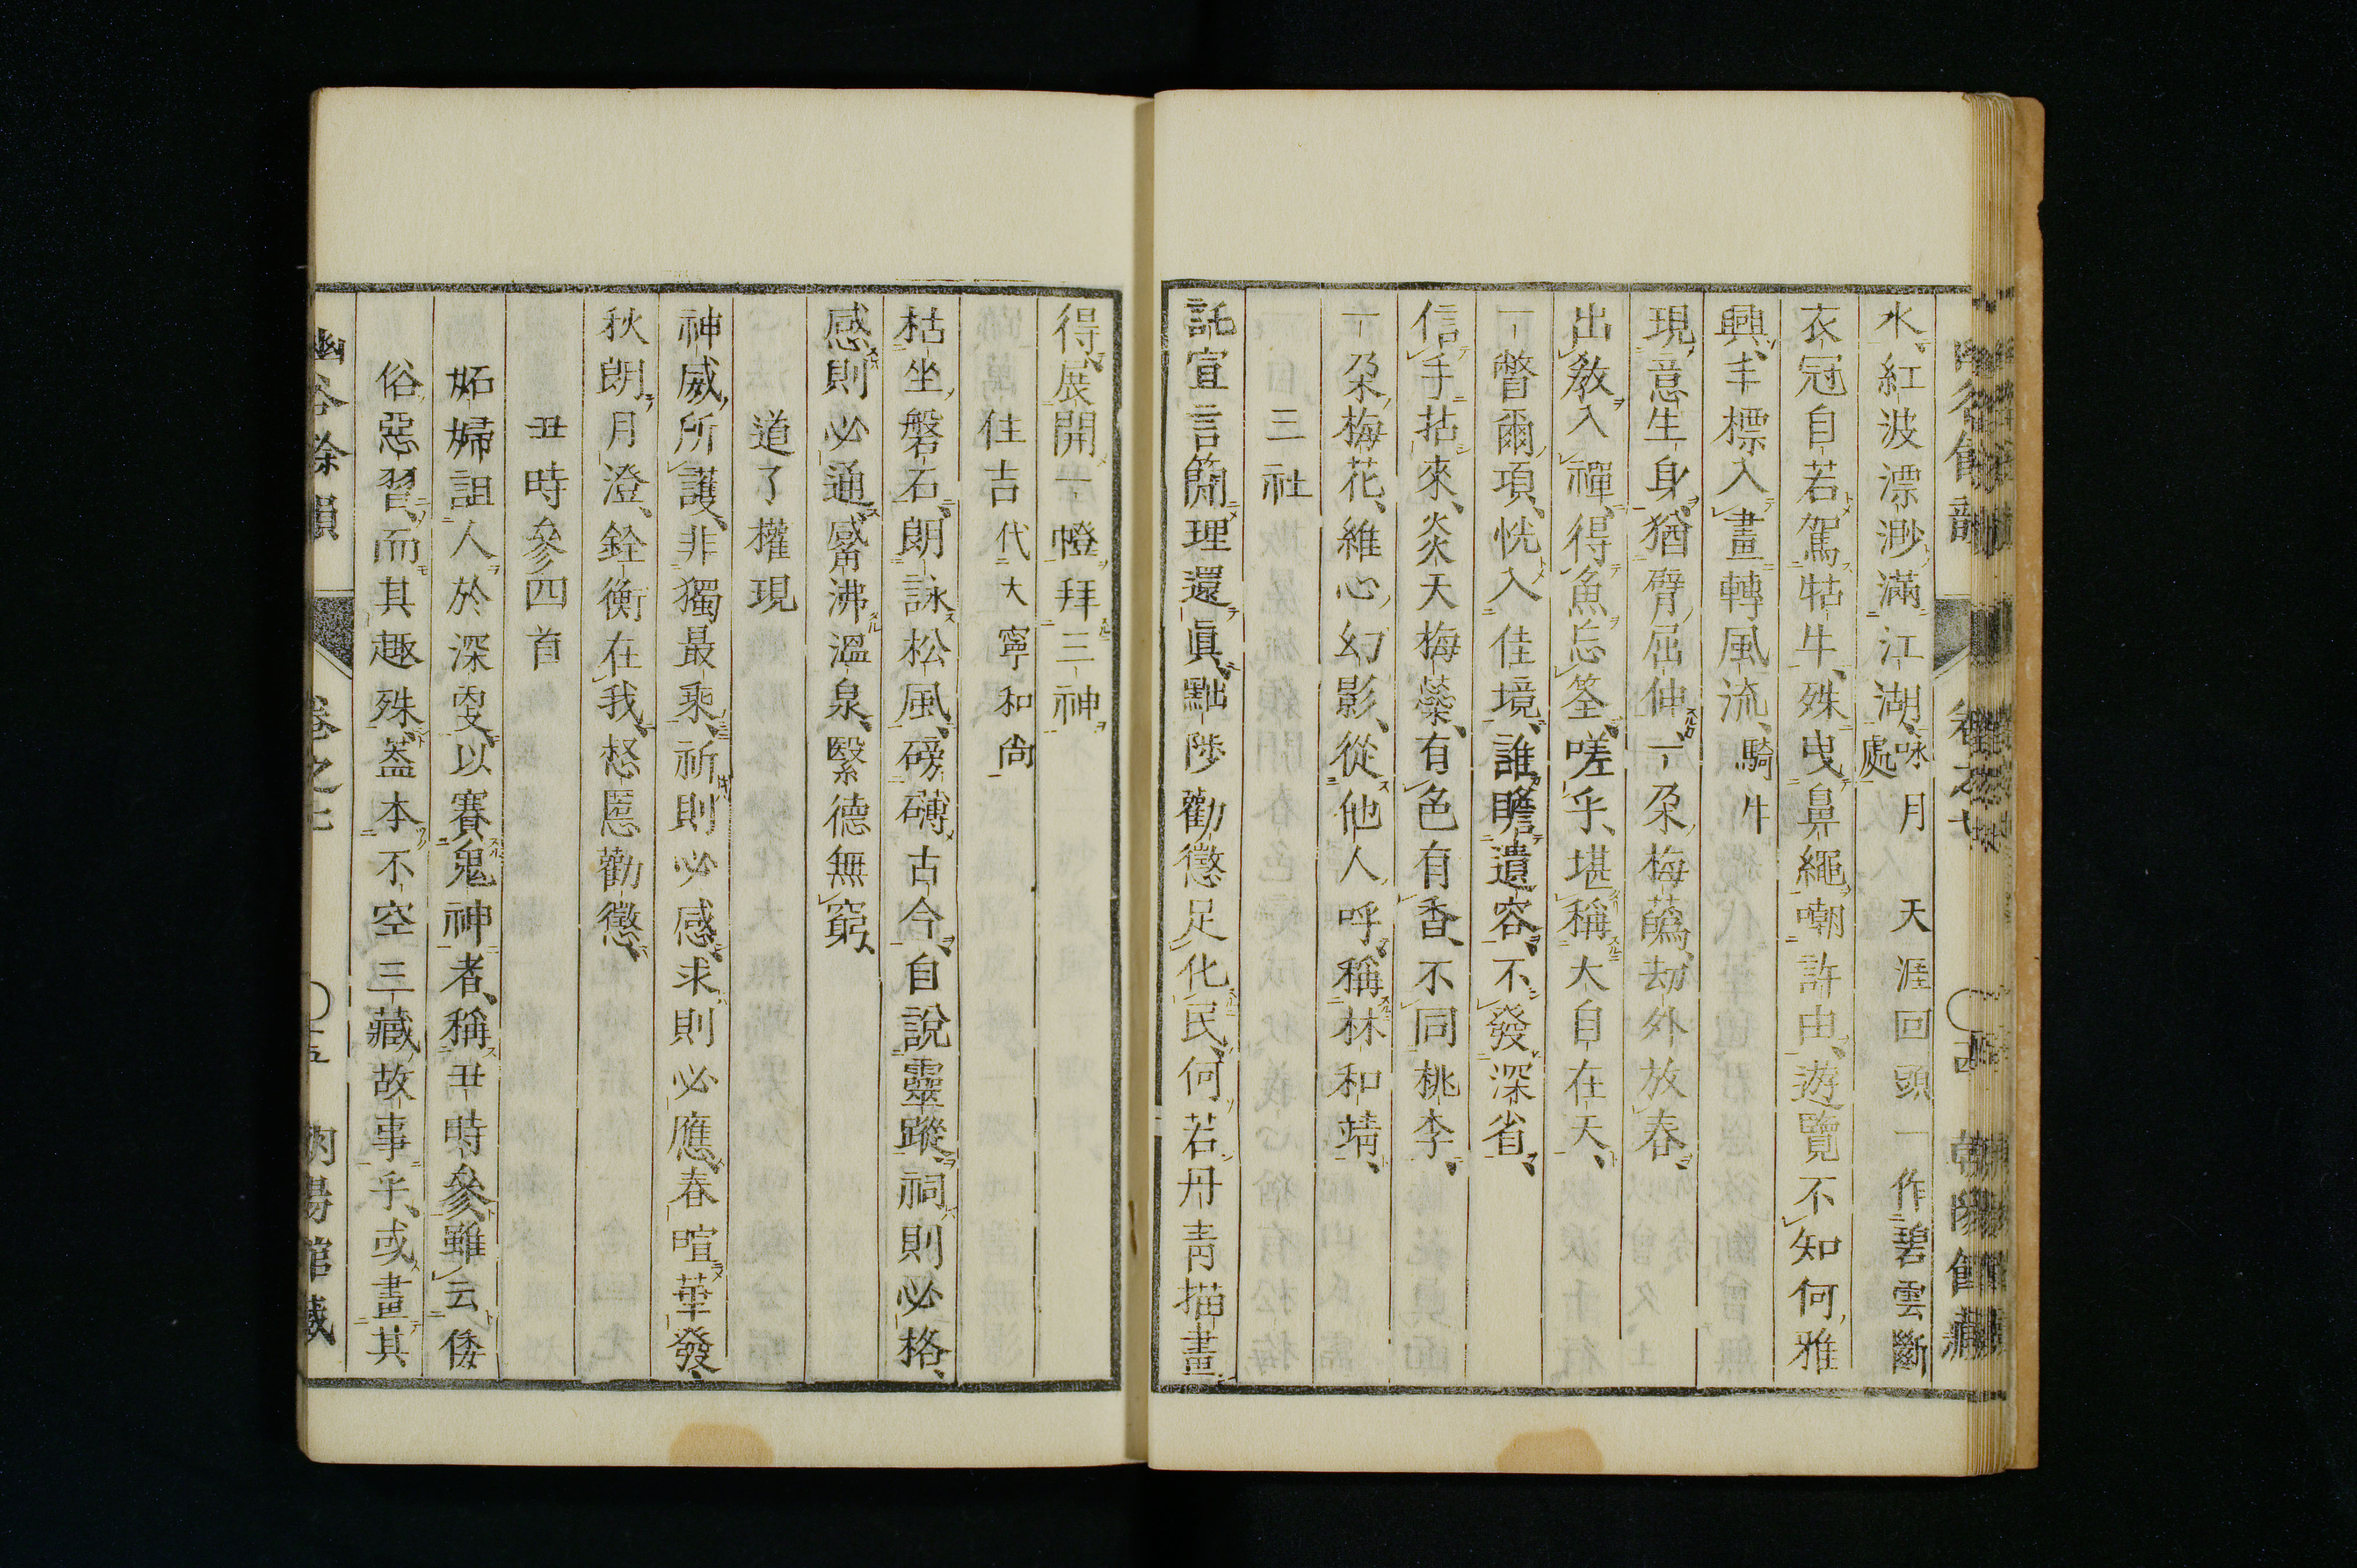 水、紅波漂渺、滿江湖、咏月 天涯回頭一作碧雲斷處
衣冠自若駕牯牛、殊曳鼻繩嘲許由、遊覽不知何雅
興、丰標入畫轉風流、騎牛
現意生身、猶臂屈伸、一朶梅蘤、劫外放春、
出教入禪、得魚忘筌、嗟乎、堪稱大自在天、
一瞥爾項、恍入佳境、誰瞻遺容、不發深省、
信手拈來、炎天梅蘂、有色有香、不同桃李、
一朶梅花、維心幻影、從他人呼、稱林和靖、
三社
託宣言簡理還眞、黜陟勸懲足化民、何若丹青描畫
得、展開一幢拜三神
住吉 代大寧和尚
枯坐磐石、朗詠松風、磅礴古今、自說靈蹤、祠則必格、
感則必通、觱沸溫泉、繄德無窮、
道了權現
神威所護、非獨最乘、祈則必感、求則必應、春暄華發、
秋朗月澄、銓衡在我、怒慝勸懲、
丑時參四首
妬婦詛人於深更、以賽鬼神者、稱丑時參、雖云倭
俗惡習、而其趣殊、葢本不空三藏故事乎、或畫其
幽谷餘韻 卷之七 ○十五 朝陽館藏